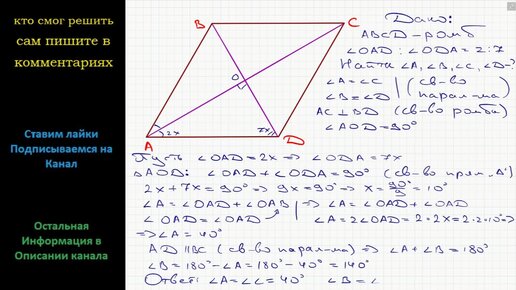 кто смог решить
сам пишите в
комментариях
Ставим лайки
Подписываемся на
Канал
Остальная
Информация в
Описании канала
B
C
O
2x
7x
A
D
Дано:
ABCD – ромб
∠OAD : ∠ODA = 2:7
Найти ∠A, ∠B, ∠C, ∠D-?
∠A = ∠C | (св-во
∠B = ∠D | парал-ма)
AC ⊥ BD (св-во ромба)
∠AOD = 90°
Пусть ∠OAD = 2x ⇒ ∠ODA = 7x
△AOD: ∠OAD + ∠ODA = 90° (св-во прям. △)
2x + 7x = 90° ⇒ 9x = 90° ⇒ x = 90°/9 = 10°
∠A = ∠OAD + ∠OAB | ⇒ ∠A = ∠OAD + ∠OAD
∠OAD = ∠OAB ∠A = 2∠OAD = 2·2x = 2·2·10° ⇒
⇒ ∠A = 40°
AD || BC (св-во парал-ма) ⇒ ∠A + ∠B = 180°
∠B = 180° - ∠A = 180° - 40° = 140°
Ответ: ∠A = ∠C = 40° ∠B = ∠